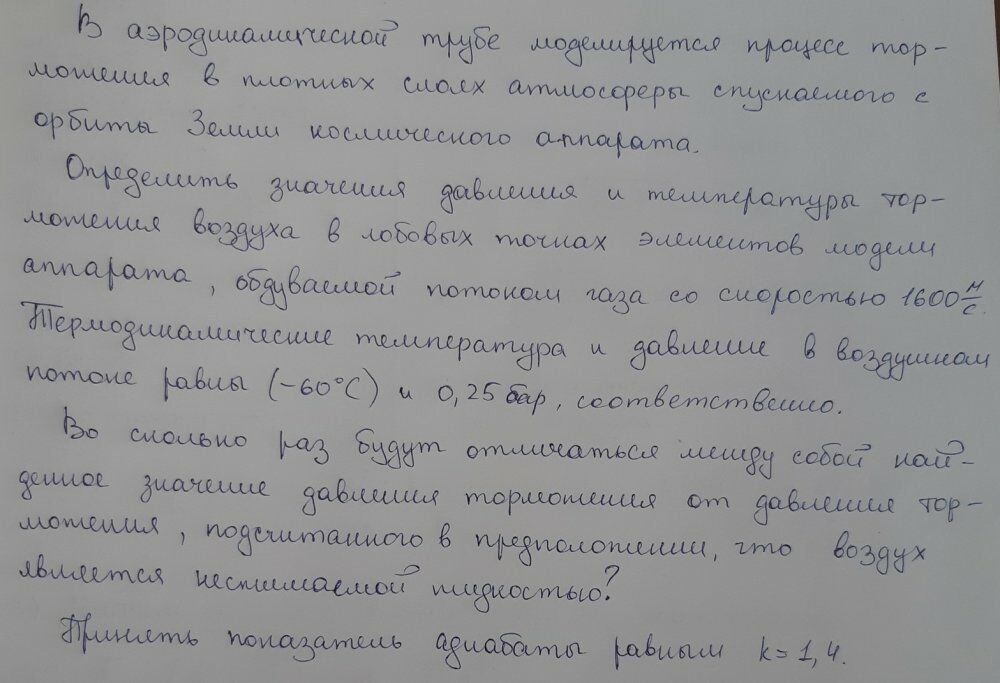 В аэродинамической трубе моделируется процесс тор-
можения в плотных слоях атмосферы спускаемого с
орбиты Земли космического аппарата.
Определить значения давления и температуры тор-
можения воздуха в лобовых точках элементов модели
аппарата, обдуваемой потоком газа со скоростью 1600 м/с.
Термодинамические температура и давление в воздушном
потоке равны (-60°С) и 0,25 бар, соответственно.
Во сколько раз будут отличаться между собой най-
денное значение давления торможения от давления тор-
можения, подсчитанного в предположении, что воздух
является несжимаемой жидкостью?
Принять показатель адиабаты равным k = 1,4.